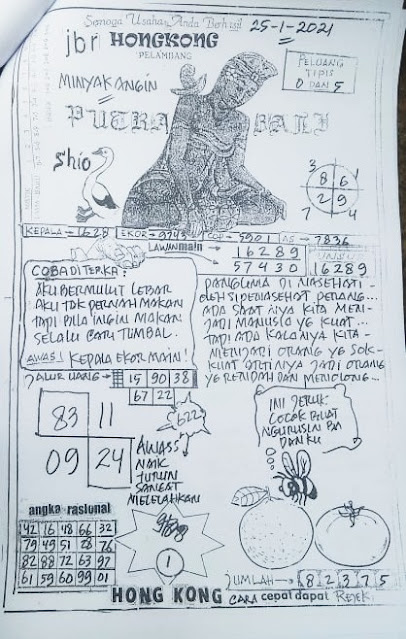 Semoga Usaha Anda Berhasil
25-1-2021
jbr HONGKONG
PELAMBANG
MINYAK ANGIN
PELUANG
TIPIS
0 DAN 5
PUTRA BALI
Shio
3 1
8 6
2 9
7 4
KEPALA → 1628 EKOR → 9743 COP → 5901 AS → 7836
LAWAN main
16289
57430
16289
COBA DI TERKA:
AKU BERMULUT LEBAR
AKU TDK PERNAH MAKAN
TAPI BILA INGIN MAKAN
SELALU CARI TUMBAL.
AWAS! KEPALA EKOR MAIN!
PANGLIMA DI NASEHATI
OLEH SI PENASEHAT PERANG...
ADA SAAT NYA KITA MEN-
JADI MANUSIA YG KUAT...
TAPI ADA KALANYA KITA
MENJADI ORANG YG SOK-
KUAT ARTINYA JADI ORANG
YG RENDAH DAN MENOLONG...
JALUR UANG → 15 90 38
67 22
83 11
09 24
622
AWASS
NAIK
TURUN
SANGAT
MELELAHKAN
INI JERUK
COCOK BUAT
NGURUSIN
angka rasional
42 16 48 66 32
79 49 51 28 76
82 88 72 63 97
61 59 60 99 01
1
JUMLAH → 8 2 3 7 5
HONG KONG CARA cepat dapat REJEKI